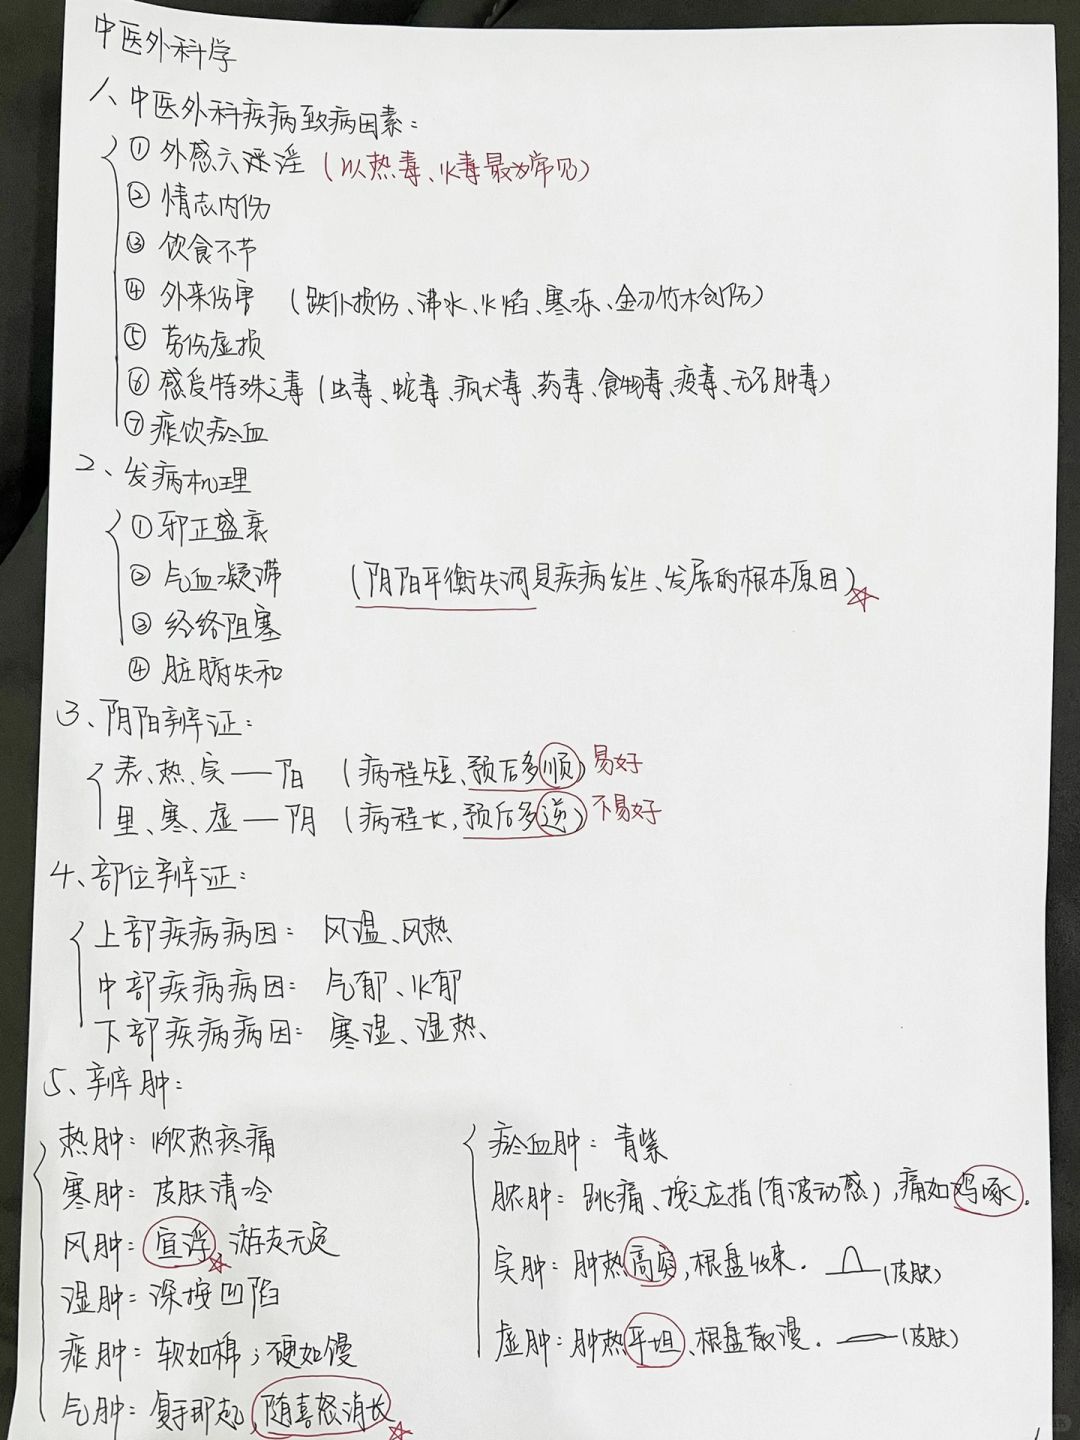 中医外科学
1、中医外科疾病致病因素：
① 外感六淫（以热毒、火毒最为常见）
② 情志内伤
③ 饮食不节
④ 外来伤害（跌仆损伤、沸水、火焰、寒冻、金刃竹木创伤）
⑤ 劳伤虚损
⑥ 感受特殊之毒（虫毒、蛇毒、疯犬毒、药毒、食物毒、疫毒、无名肿毒）
⑦ 痰饮瘀血
2、发病机理
① 邪正盛衰
② 气血凝滞（阴阳平衡失调是疾病发生、发展的根本原因）
③ 经络阻塞
④ 脏腑失和
3、阴阳辨证：
表、热、实——阳（病程短、预后多顺）易好
里、寒、虚——阴（病程长，预后多逆）不易好
4、部位辨证：
上部疾病病因：风温、风热
中部疾病病因：气郁、火郁
下部疾病病因：寒湿、湿热、
5、辨肿：
热肿：焮热疼痛
寒肿：皮肤清冷
风肿：宣浮、游走无定
湿肿：深按凹陷
痰肿：软如棉；硬如馒
气肿：复手即起，随喜怒消长
瘀血肿：青紫
脓肿：跳痛、按之应指（有波动感），痛如鸡啄.
实肿：肿热高突，根盘收束.（皮肤）
虚肿：肿热平坦、根盘散漫.（皮肤）